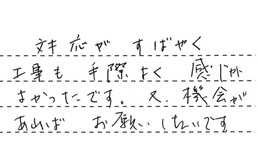 対応が すばやく
工事も 手際よく 感じが
よかったです。又、機会が
あれば お願いしたいです